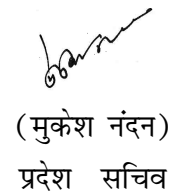 (मुकेश नंदन)
प्रदेश सचिव